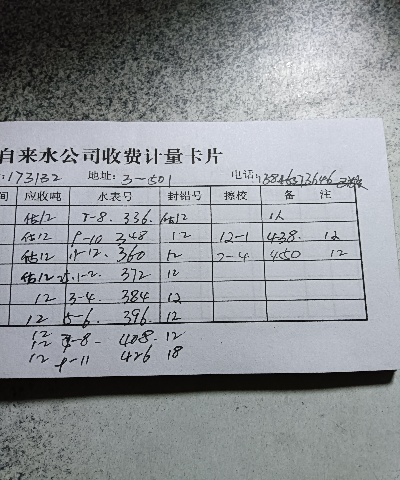 自来水公司收费计量卡片
:173132 地址: 3-501 电话:
间 应收吨 水表号 封铅号 擦校 备 注
估12 7-8. 336. 估12
估12 9-10 348 12 12-1 438. 12
估12 11-12. 360 12 2-4 450 12
估12 25.1-2. 372 12
12 3-4. 384 12
12 5-6. 396. 12
12 7-8- 408. 12
12 9-11 426 18